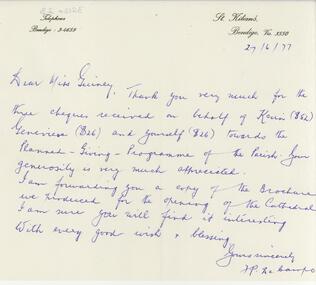 Telephone
Bendigo : 3-4659
St. Kilians,
Bendigo, Vic. 3550
27/6/77
Dear Miss Guiney,
Thank you very much for the
three cheques received on behalf of Kevin ($52)
Genevieve ($26) and yourself ($26) towards the
Planned - Giving - Programme of the Parish. Your
generosity is very much appreciated.
I am forwarding you a copy of the Brochure
we produced for the opening of the Cathedral
I am sure you will find it interesting
With every good wish & blessing
Yours sincerely